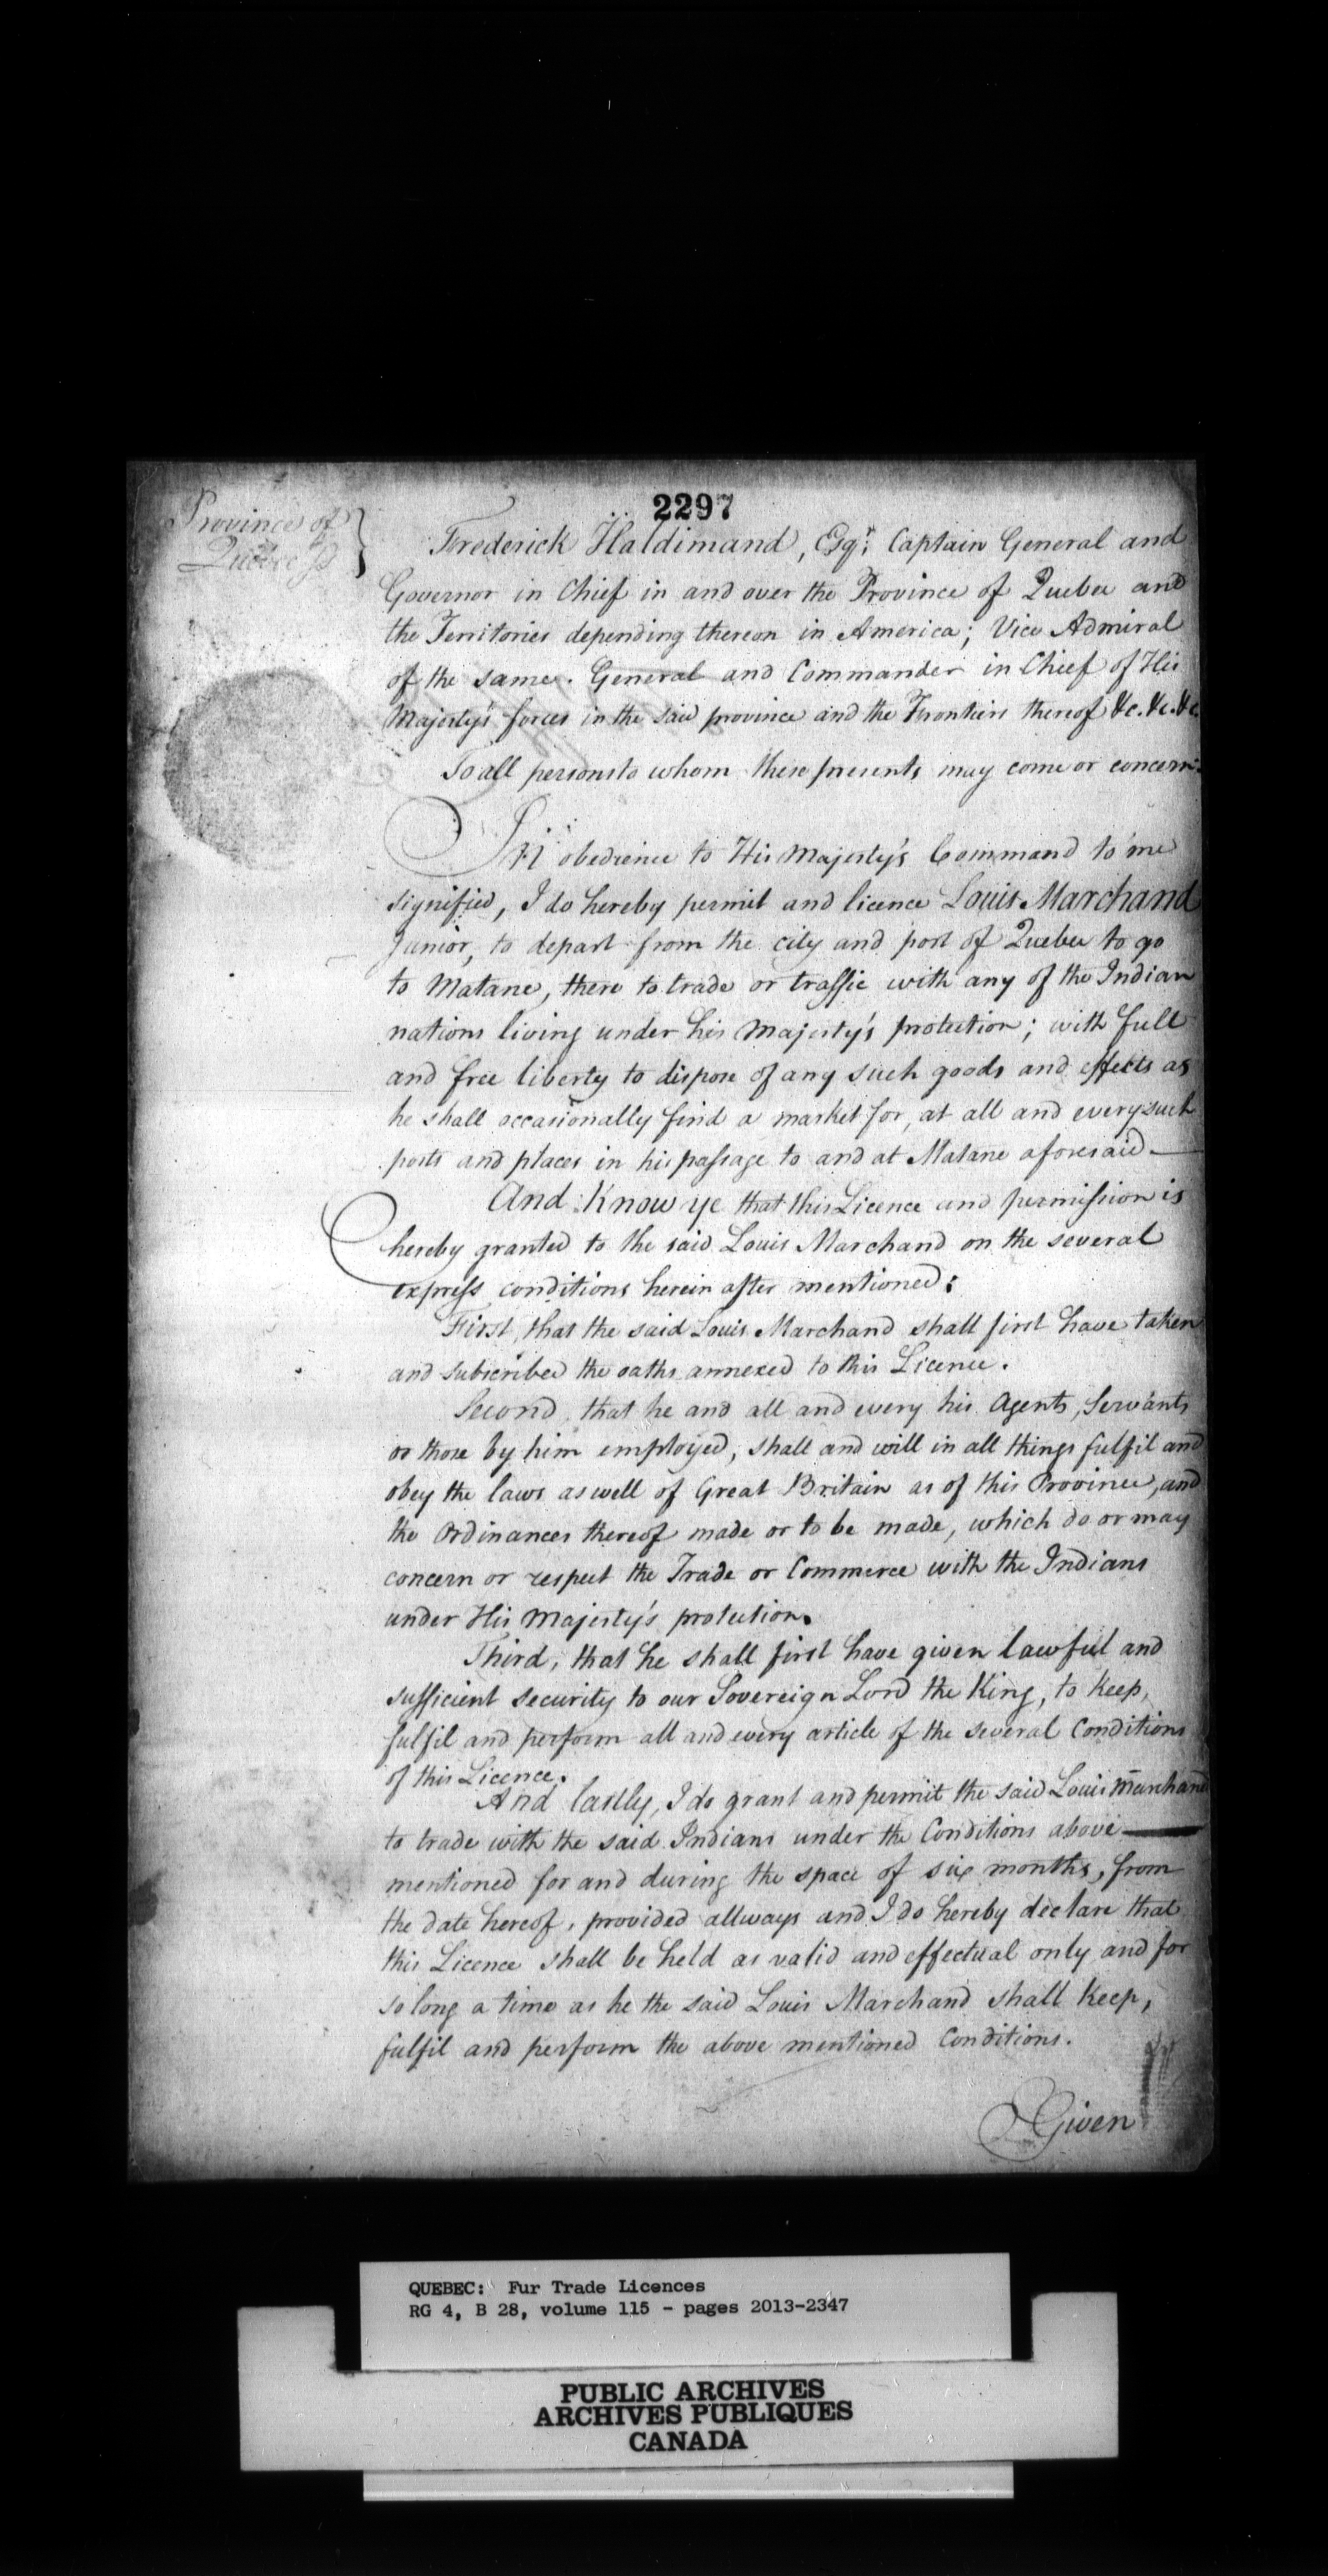 2297
Province of
Quebec ss
Frederick Haldimand, Esqr. Captain General and
Governor in Chief in and over the Province of Quebec and
the Territories depending thereon in America; Vice Admiral
of the same. General and Commander in Chief of His
Majesty's forces in the said province and the Frontiers thereof &c. &c. &c.
To all persons to whom these presents may come or concern:
In obedience to His Majesty's Command to me
signified, I do hereby permit and licence Louis Marchand
Junior, to depart from the city and port of Quebec to go
to Matane, there to trade or traffic with any of the Indian
nations living under his Majesty's protection; with full
and free liberty to dispose of any such goods and effects as
he shall occasionally find a market for, at all and every such
posts and places in his passage to and at Matane aforesaid
And Know ye that this Licence and permission is
hereby granted to the said Louis Marchand on the several
express conditions herein after mentioned:
First, that the said Louis Marchand shall first have taken
and subscribed the oaths annexed to this Licence.
Second, that he and all and every his Agents, Servants
or those by him employed, shall and will in all things fulfil and
obey the laws as well of Great Britain as of this Province, and
the Ordinances thereof made or to be made, which do or may
concern or respect the Trade or Commerce with the Indians
under His Majesty's protection.
Third, that he shall first have given lawful and
sufficient security to our Sovereign Lord the King, to keep,
fulfil and perform all and every article of the several Conditions
of this Licence.
And lastly, I do grant and permit the said Louis Marchand
to trade with the said Indians under the Conditions above
mentioned for and during the space of six months, from
the date hereof, provided allways and I do hereby declare that
this Licence shall be held as valid and effectual only and for
so long a time as he the said Louis Marchand shall keep,
fulfil and perform the above mentioned Conditions.
Given
QUEBEC: Fur Trade Licences
RG 4, B 28, volume 115 - pages 2013-2347
PUBLIC ARCHIVES
ARCHIVES PUBLIQUES
CANADA